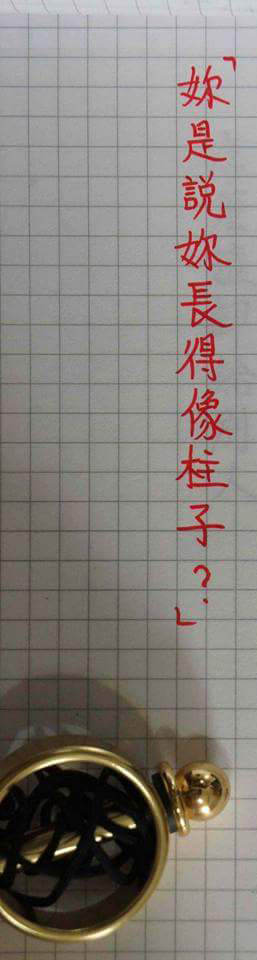 「妳是説妳長得像柱子？」